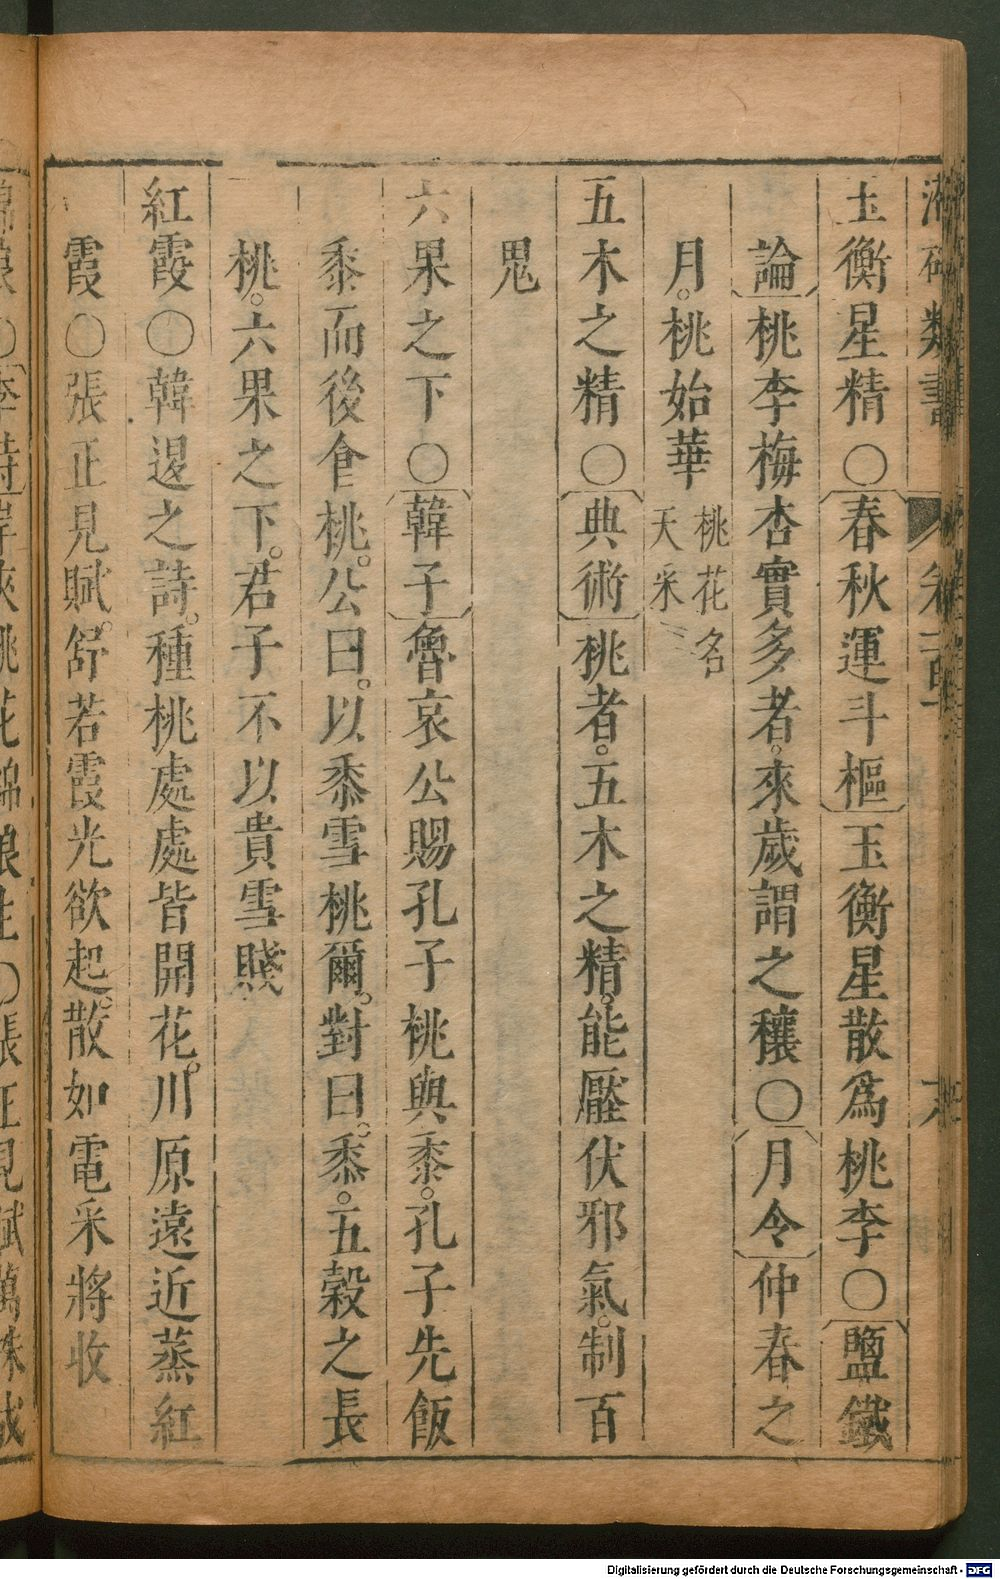 玉衡星精〇春秋運斗樞玉衡星散為桃李〇鹽鐵
論桃李梅杏實多者。來歲謂之穰〇月令仲春之
月。桃始華桃花名
天采
五木之精〇典術桃者。五木之精。能壓伏邪氣。制百
鬼
六果之下〇韓子魯哀公賜孔子桃與黍。孔子先飯
黍而後食桃。公曰。以黍雪桃爾。對曰。黍。五穀之長
桃。六果之下。君子不以貴雪賤
紅霞〇韓退之詩。種桃處處皆開花。川原遠近蒸紅
霞〇張正見賦。舒若霞光欲起。散如電采將收
類書
Digitalisierung gefördert durch die Deutsche Forschungsgemeinschaft - DFG